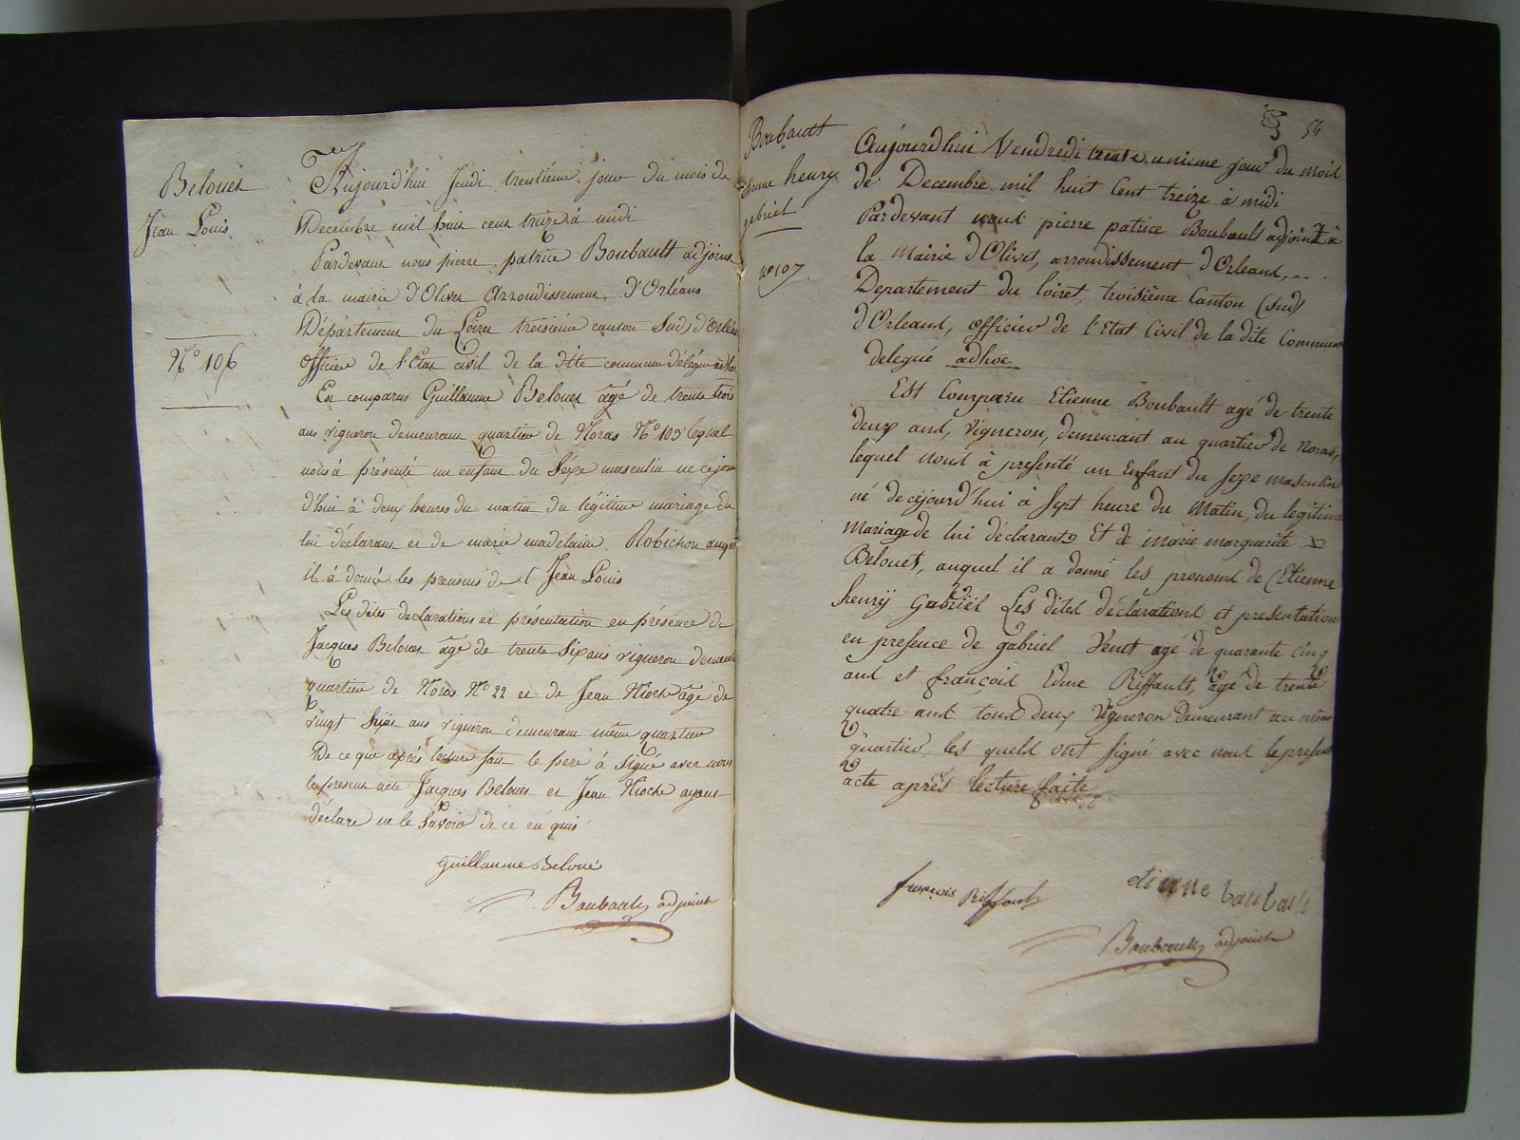 Belouet
Jean Louis
N° 106
Aujourd'hui Jeudi trentième jour du mois de
Decembre mil huit cent treize à midi
Pardevant nous pierre patrice Boubault adjoint
à la mairie d'Olivet Arrondissement d'Orléans
Département du Loiret troisième canton Sud d'Orléans
officier de l'Etat civil de la dite commune délégué
Est comparus Guillaume Belouet âgé de trente trois
ans vigneron demeurant quartier de Noras N° 103 lequel
nous à présenté un enfant du Séxe masculin né ce jour
d'hui à deux heures du matin du légitime mariage de
lui déclarant et de marie madelaine Robichon auquel
il à donné les prénoms de Jean Louis
Les dites declarations et présentation en présence de
Jacques Belouet âgé de trente Six ans vigneron demeurant
quartier de Noras N° 22 et de Jean Hioche âgé de
vingt ans vigneron demeurant même quartier
De ce que après lecture fait le père à Signé avec nous
le présent acte Jacques Belouet et Jean Hioche ayant
déclaré ne le Savoir de ce enquis
Guillaume Beloué
Boubault adjoint
54
Boubault
Etienne henry
gabriel
n° 107
Aujourd'hui Vendredi trente unieme jour du mois
de Decembre mil huit Cent treize à midi
Pardevant nous pierre patrice Boubault adjoint à
la Mairie d'Olivet, arrondissement d'Orleans,
Departement du loiret, troisième Canton (Sud)
d'Orleans, officier de l'Etat Civil de la dite Commune
delegué adhoc
Est Comparu Etienne Boubault agé de trente
deux ans, Vigneron, demeurant au quartier de Noras,
lequel nous à presenté un Enfant du sexe masculin
né de cejourd'hui à sept heure du Matin, du legitime
Mariage de lui déclarant Et de marie marguerite
Belouet, auquel il a donné les prenoms de Etienne
henry Gabriël Les dites déclarations et presentation
en presence de gabriel Venet agé de quarante cinq
ans et françois Edme Riffault, agé de trente
quatre ans tous deux Vigneron demeurant au même
quartier les quels ont signé avec nous le present
acte après lecture faite
françois Riffault
etienne baubault
Boubault adjoint